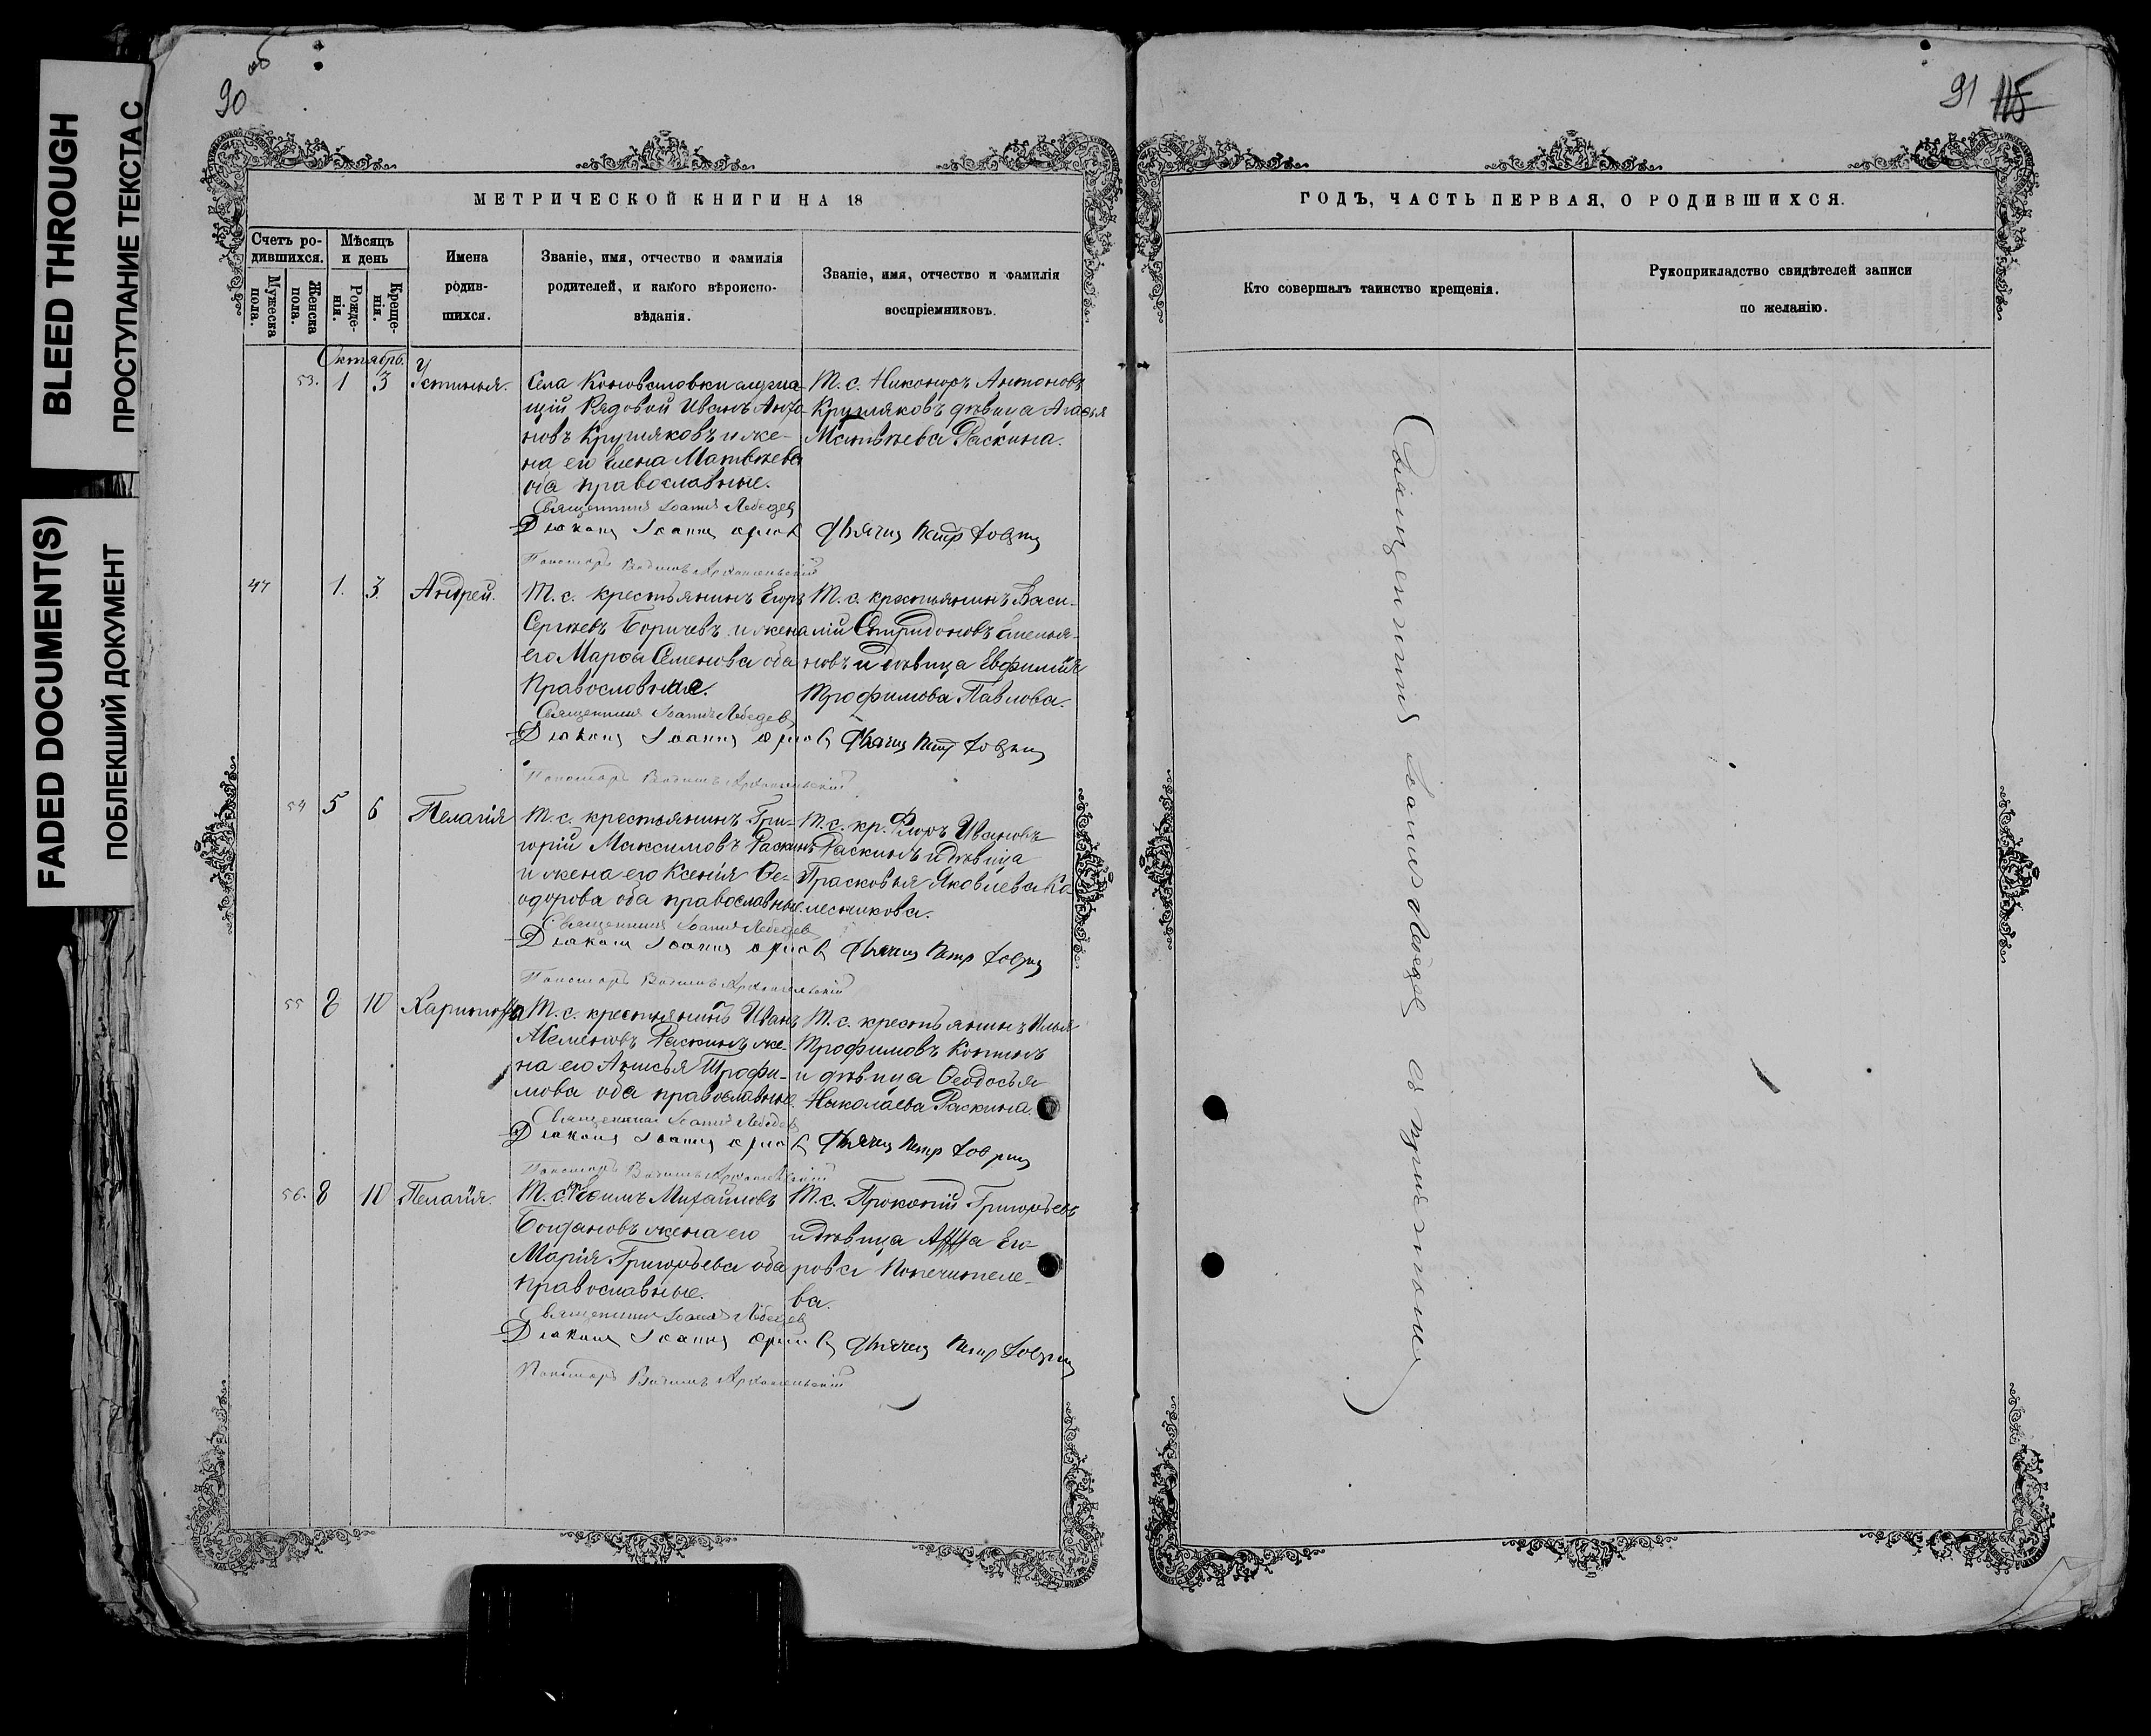 BLEED THROUGH
ПРОСТУПАНИЕ ТЕКСТА С
FADED DOCUMENT(S)
ПОБЛЕКШИЙ ДОКУМЕНТ
90 об
МЕТРИЧЕСКОЙ КНИГИ НА 18
Счетъ ро-
дившихся.
Мужеска
пола.
Женска
пола.
Мѣсяцъ
и день
Рожде-
нія.
Креще-
нія.
Имена
родив-
шихся.
Званіе, имя, отчество и фамилія
родителей, и какого вѣроиспо-
вѣданія.
Званіе, имя, отчество и фамилія
воспріемниковъ.
Октябрь.
53. 1 3 Устинья.
Села Коноваловки
Рядовой Иванъ
новъ Кругляковъ и же-
на его Елена Матвѣева
оба православные.
Священникъ Іоаннъ Лебедев
Діаконъ Іоаннъ Орлов
М. с. Никаноръ Антоновъ
Кругляковъ дѣвица Агафья
Матвѣева Раскина.
47 1. 3. Андрей.
М. с. крестьянинъ Егоръ
Сергѣевъ Боричевъ и жена
его Марфа Семенова оба
Православные.
Священникъ Іоаннъ Лебедев
Діаконъ Іоаннъ Орлов
М. с. крестьянинъ Васи-
лій Спиридоновъ Емелья-
новъ и дѣвица Евфимія
Трофимова Павлова.
54 5 6 Пелагія
М. с. крестьянинъ Гри-
горій Максимовъ Раскинъ
и жена его Ксенія Ѳе-
одорова оба православные.
Священникъ Іоаннъ Лебедев
Діаконъ Іоаннъ Орлов
М. с. кр. Флоръ Ивановъ
Раскинъ и дѣвица
Прасковья Яковлева Ко-
лесникова.
55 8 10
М. с. крестьянинъ Иванъ
Раскинъ же-
на его Анисья Трофи-
мова оба православные.
Священникъ Іоаннъ Лебедев
Діаконъ Іоаннъ Орлов
М. с. крестьянинъ Илья
Трофимовъ
и дѣвица Ѳеодосья
Николаева Раскина.
56. 8 10 Пелагія.
М. с. Михайловъ
Богдановъ жена его
Марія Григорьева оба
православные.
Священникъ Іоаннъ Лебедев
Діаконъ Іоаннъ Орлов
М. с. Прокопій Григорьевъ
и дѣвица Анна Его-
рова Попечителе-
ва.
91 115
ГОДЪ, ЧАСТЬ ПЕРВАЯ, О РОДИВШИХСЯ.
Кто совершалъ таинство крещенія.
Рукоприкладство свидѣтелей записи
по желанію.
Священникъ Іоаннъ Лебедев съ причтомъ